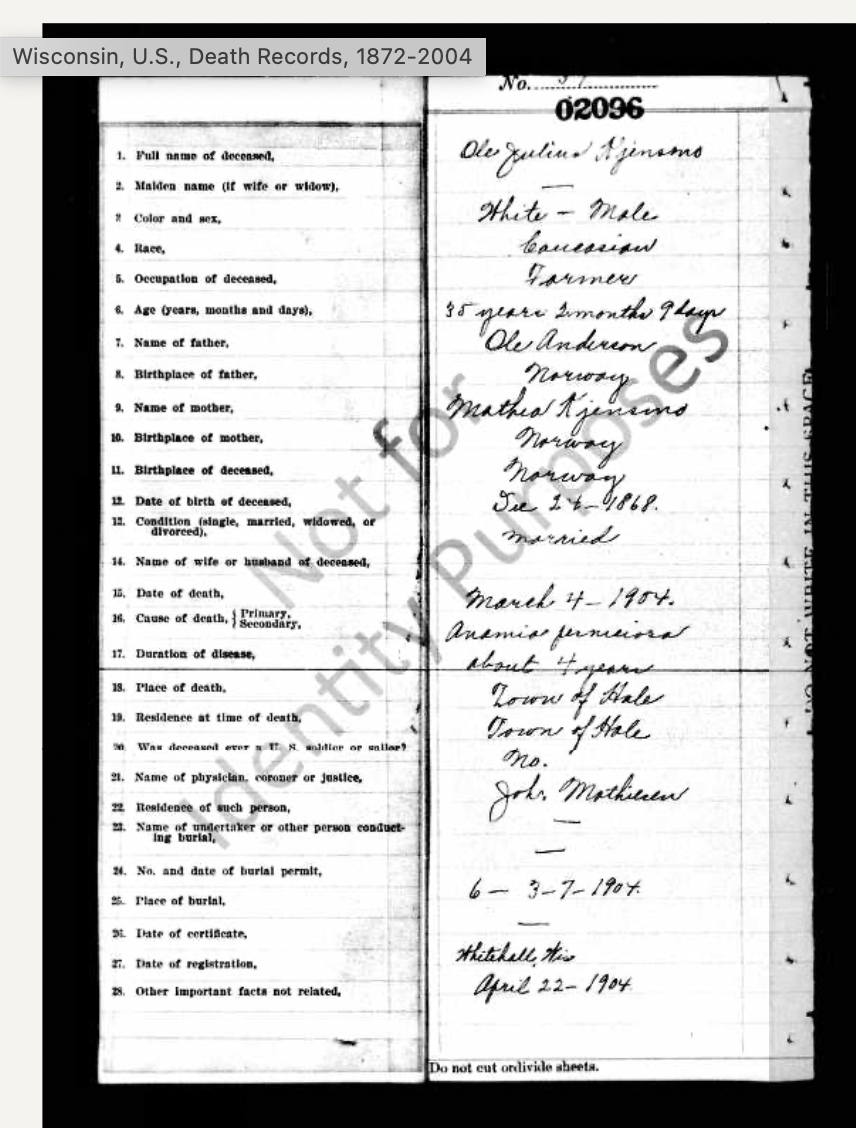 Wisconsin, U.S., Death Records, 1872-2004
No.
02096
1. Full name of deceased, Ole Julius Kjensmo
2. Maiden name (if wife or widow), —
3 Color and sex, White – Male
4. Race, Caucasian
5. Occupation of deceased, Farmer
6. Age (years, months and days), 35 years 2 months 9 days
7. Name of father, Ole Anderson
8. Birthplace of father, Norway
9. Name of mother, Mathea Kjensmo
10. Birthplace of mother, Norway
11. Birthplace of deceased, Norway
12. Date of birth of deceased, Dec 24–1868.
13. Condition (single, married, widowed, or
divorced), married
14. Name of wife or husband of deceased,
15. Date of death, March 4–1904.
16. Cause of death, { Primary,
Secondary, Anamia perniciosa
17. Duration of disease, about 4 years
18. Place of death, Town of Hale
19. Residence at time of death, Town of Hale
20. Was deceased ever a U. S. soldier or sailor? No.
21. Name of physician, coroner or justice, Joh. Mathiesen
22. Residence of such person, —
23. Name of undertaker or other person conduct-
ing burial, —
24. No. and date of burial permit, 6 – 3-7-1904.
25. Place of burial, —
26. Date of certificate, Whitehall, Wis
27. Date of registration, April 22–1904
28. Other important facts not related,
Do not cut or divide sheets.
DO NOT WRITE IN THIS SPACE
Not for
Identity Purposes